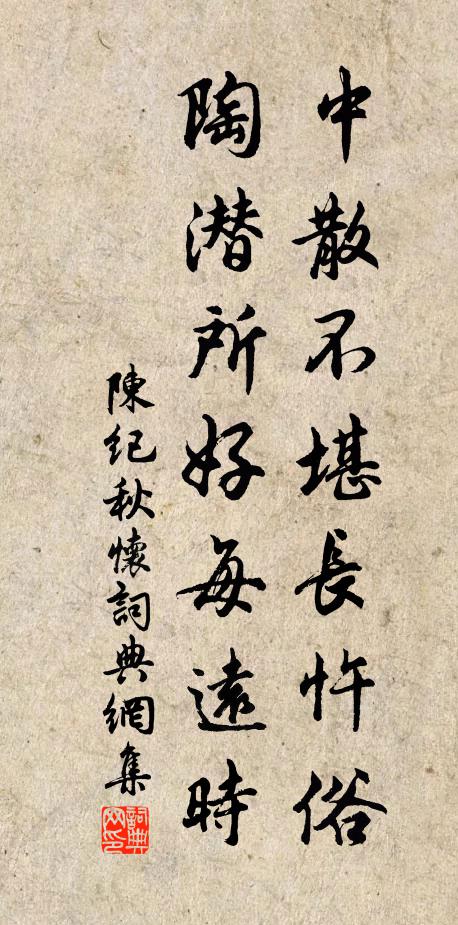 中散不堪長忤俗
陶潛所好每遠時
陳紀秋懷詞典網集
詞典网印